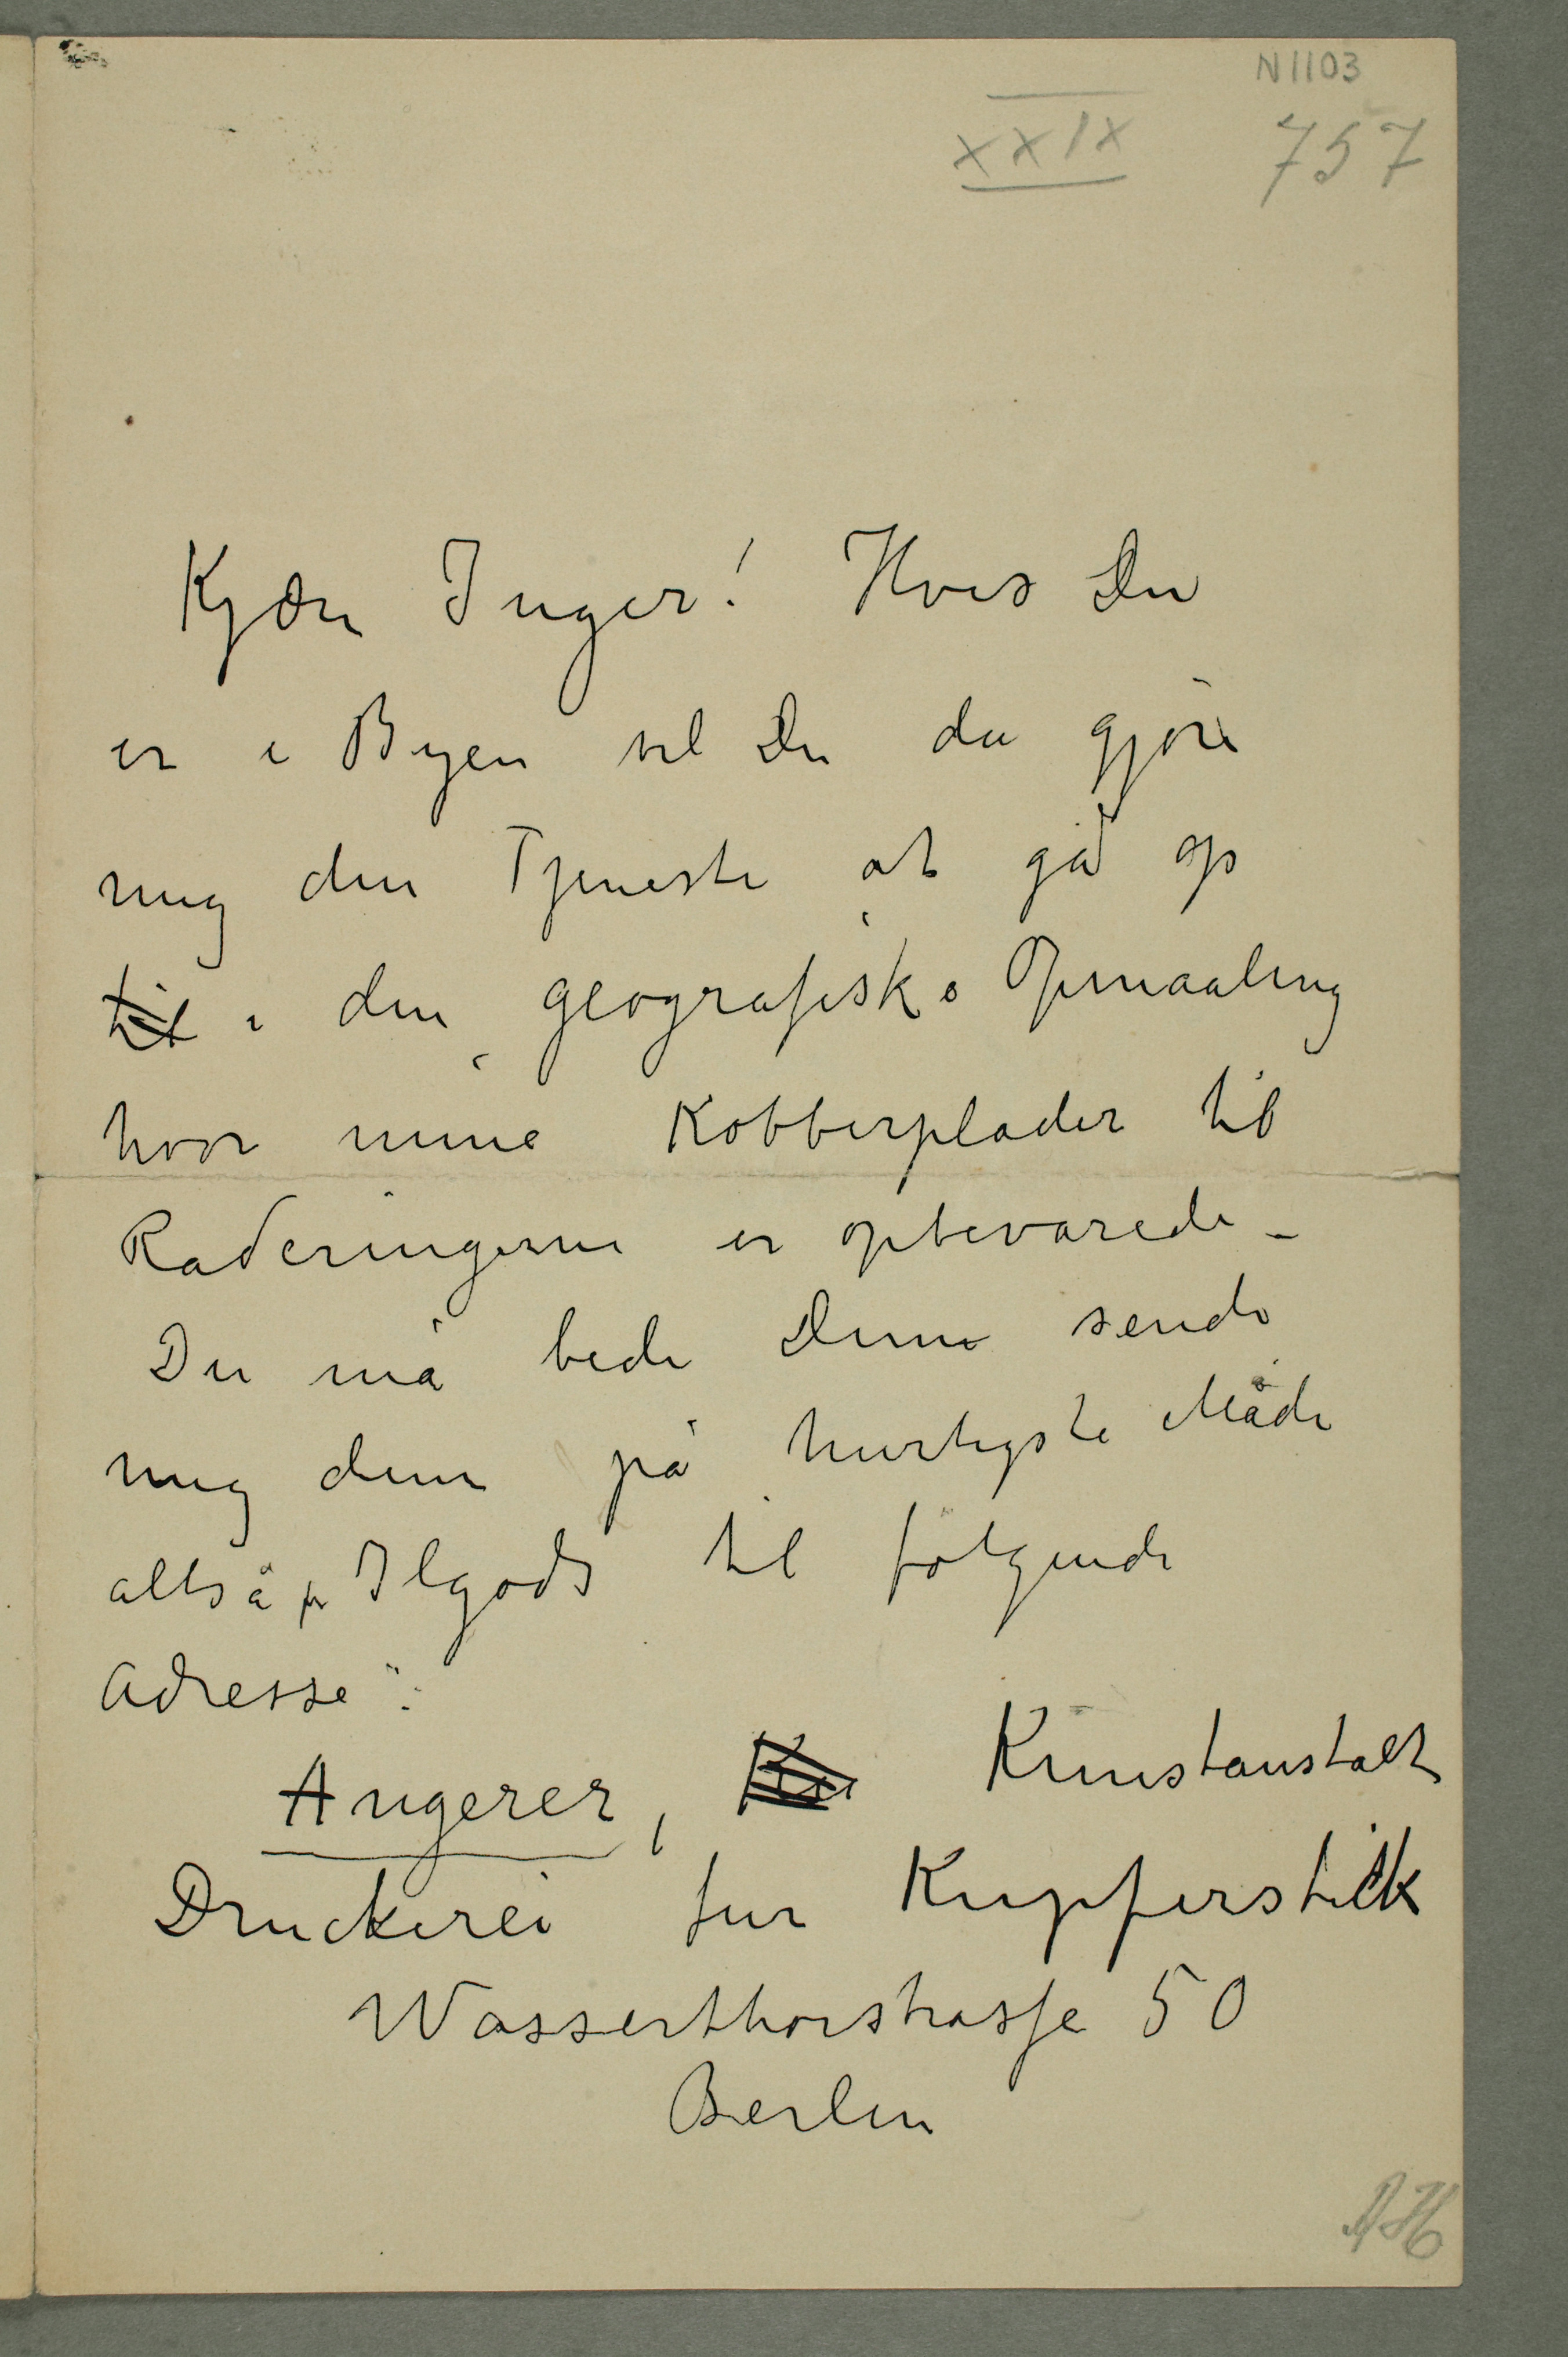 N 1103
XXIX 757
Kjære Inger! Hvis Du
er i Byen vil Du da gjøre
mig den Tjeneste at gå op
til i den geografiske Opmaaling
hvor mine Kobberplader til
Raderingerne er opbevarede –
Du må bede Dem sende
mig dem på hurtigste Måde
altså pr Ilgods til følgende
Adresse":
Angerer, Kunstanstalt
Druckerei fur Kupferstick
Wasserthorstrasse 50
Berlin